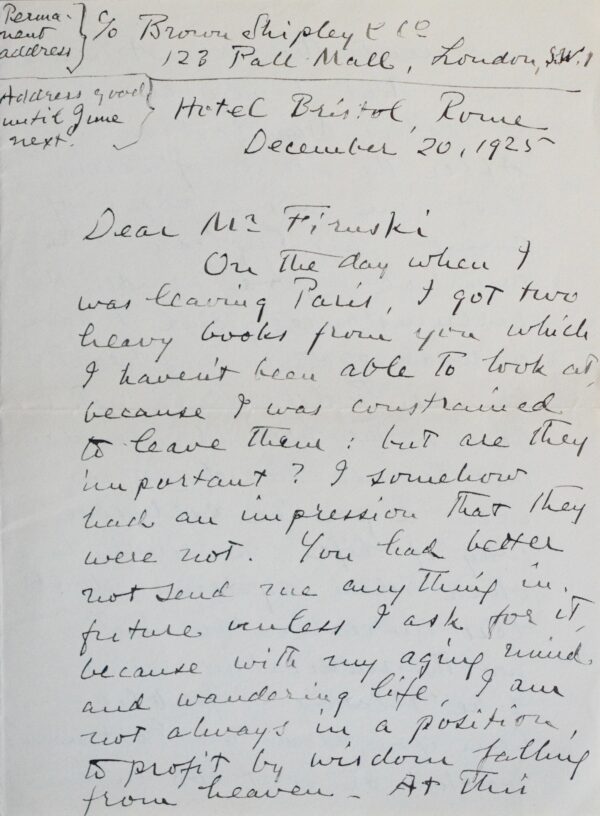 Perma-
nent
address
c/o Brown Shipley & Co
123 Pall Mall, London, S.W.1
Address good
until June
next.
Hotel Bristol, Rome
December 20, 1925
Dear Mr Firuski
On the day when I
was leaving Paris, I got two
heavy books from you which
I haven't been able to look at,
because I was constrained
to leave them: but are they
important? I somehow
had an impression that they
were not. You had better
not send me anything in
future unless I ask for it,
because with my aging mind
and wandering life, I am
not always in a position
to profit by wisdom falling
from heaven - At this